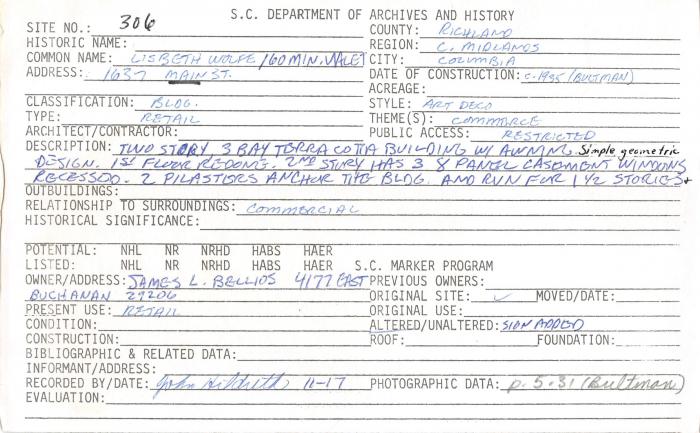 S.C. DEPARTMENT OF ARCHIVES AND HISTORY
SITE NO.: 306 COUNTY: RICHLAND
HISTORIC NAME: REGION: C. MIDLANDS
COMMON NAME: LISBETH WOLFE/60 MIN. VALET CITY: COLUMBIA
ADDRESS: 1637 MAIN ST. DATE OF CONSTRUCTION: c-1935 (BULTMAN)
ACREAGE:
CLASSIFICATION: BLDG. STYLE: ART DECO
TYPE: RETAIL THEME(S): COMMERCE
ARCHITECT/CONTRACTOR: PUBLIC ACCESS: RESTRICTED
DESCRIPTION: TWO STORY, 3 BAY TERRA COTTA BUILDING W/ AWNING. Simple geometric
DESIGN. 1ST FLOOR REDONE. 2ND STORY HAS 3 8 PANEL CASEMENT WINDOWS
RECESSED. 2 PILASTERS ANCHOR THE BLDG. AND RUN FOR 1 1/2 STORIES+
OUTBUILDINGS:
RELATIONSHIP TO SURROUNDINGS: COMMERCIAL
HISTORICAL SIGNIFICANCE:
POTENTIAL: NHL NR NRHD HABS HAER
LISTED: NHL NR NRHD HABS HAER S.C. MARKER PROGRAM
OWNER/ADDRESS: JAMES L. BELLIOS 4177 EAST PREVIOUS OWNERS:
BUCHANAN 29206 ORIGINAL SITE: ✓ MOVED/DATE:
PRESENT USE: RETAIL ORIGINAL USE:
CONDITION: ALTERED/UNALTERED: SIGN ADDED
CONSTRUCTION: ROOF: FOUNDATION:
BIBLIOGRAPHIC & RELATED DATA:
INFORMANT/ADDRESS:
RECORDED BY/DATE: John Hildreth 11-17 PHOTOGRAPHIC DATA: p. 5-31 (Bultman)
EVALUATION: